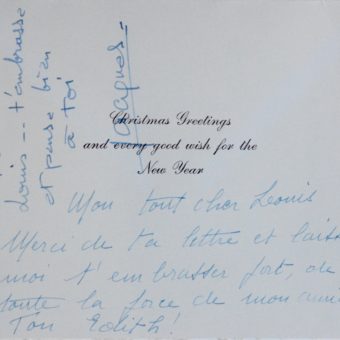 Christmas Greetings
and every good wish for the
New Year
Mon tout cher Leonis
Merci de ta lettre et laisse
moi t'embrasser fort, de
toute la force de mon amitié
Ton Edith!
Louis -- t'embrasse
et pense bien
à toi
Jacques